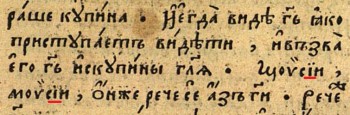 раше кꙋ́пина · И҆є҆гда̀ видѣ̀ г҃ь ꙗ҆́кѡ
пристꙋпа́етъ ви́дѣти , и҆въ́зва̀
є҆го̀ г҃ь и҆скꙋпины̀ гл҃ѧ · Мѻѷсі́и ,
мѻѷсі́и , ѻ҆́нже рече сѐ а҆́зъ г҃и · Рече́